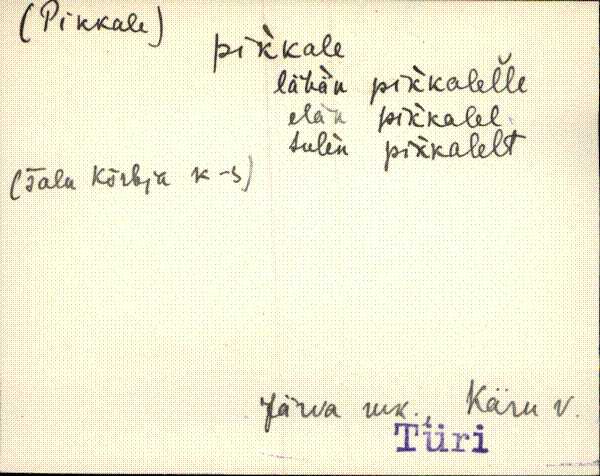 (Pikkale)
pik̀kale
lähän pik̀kalelle
elän pik̀kalel
tulen pik̀kalelt
(Talu Kõrbja k-s)
Järva mk., Käru v.
Türi